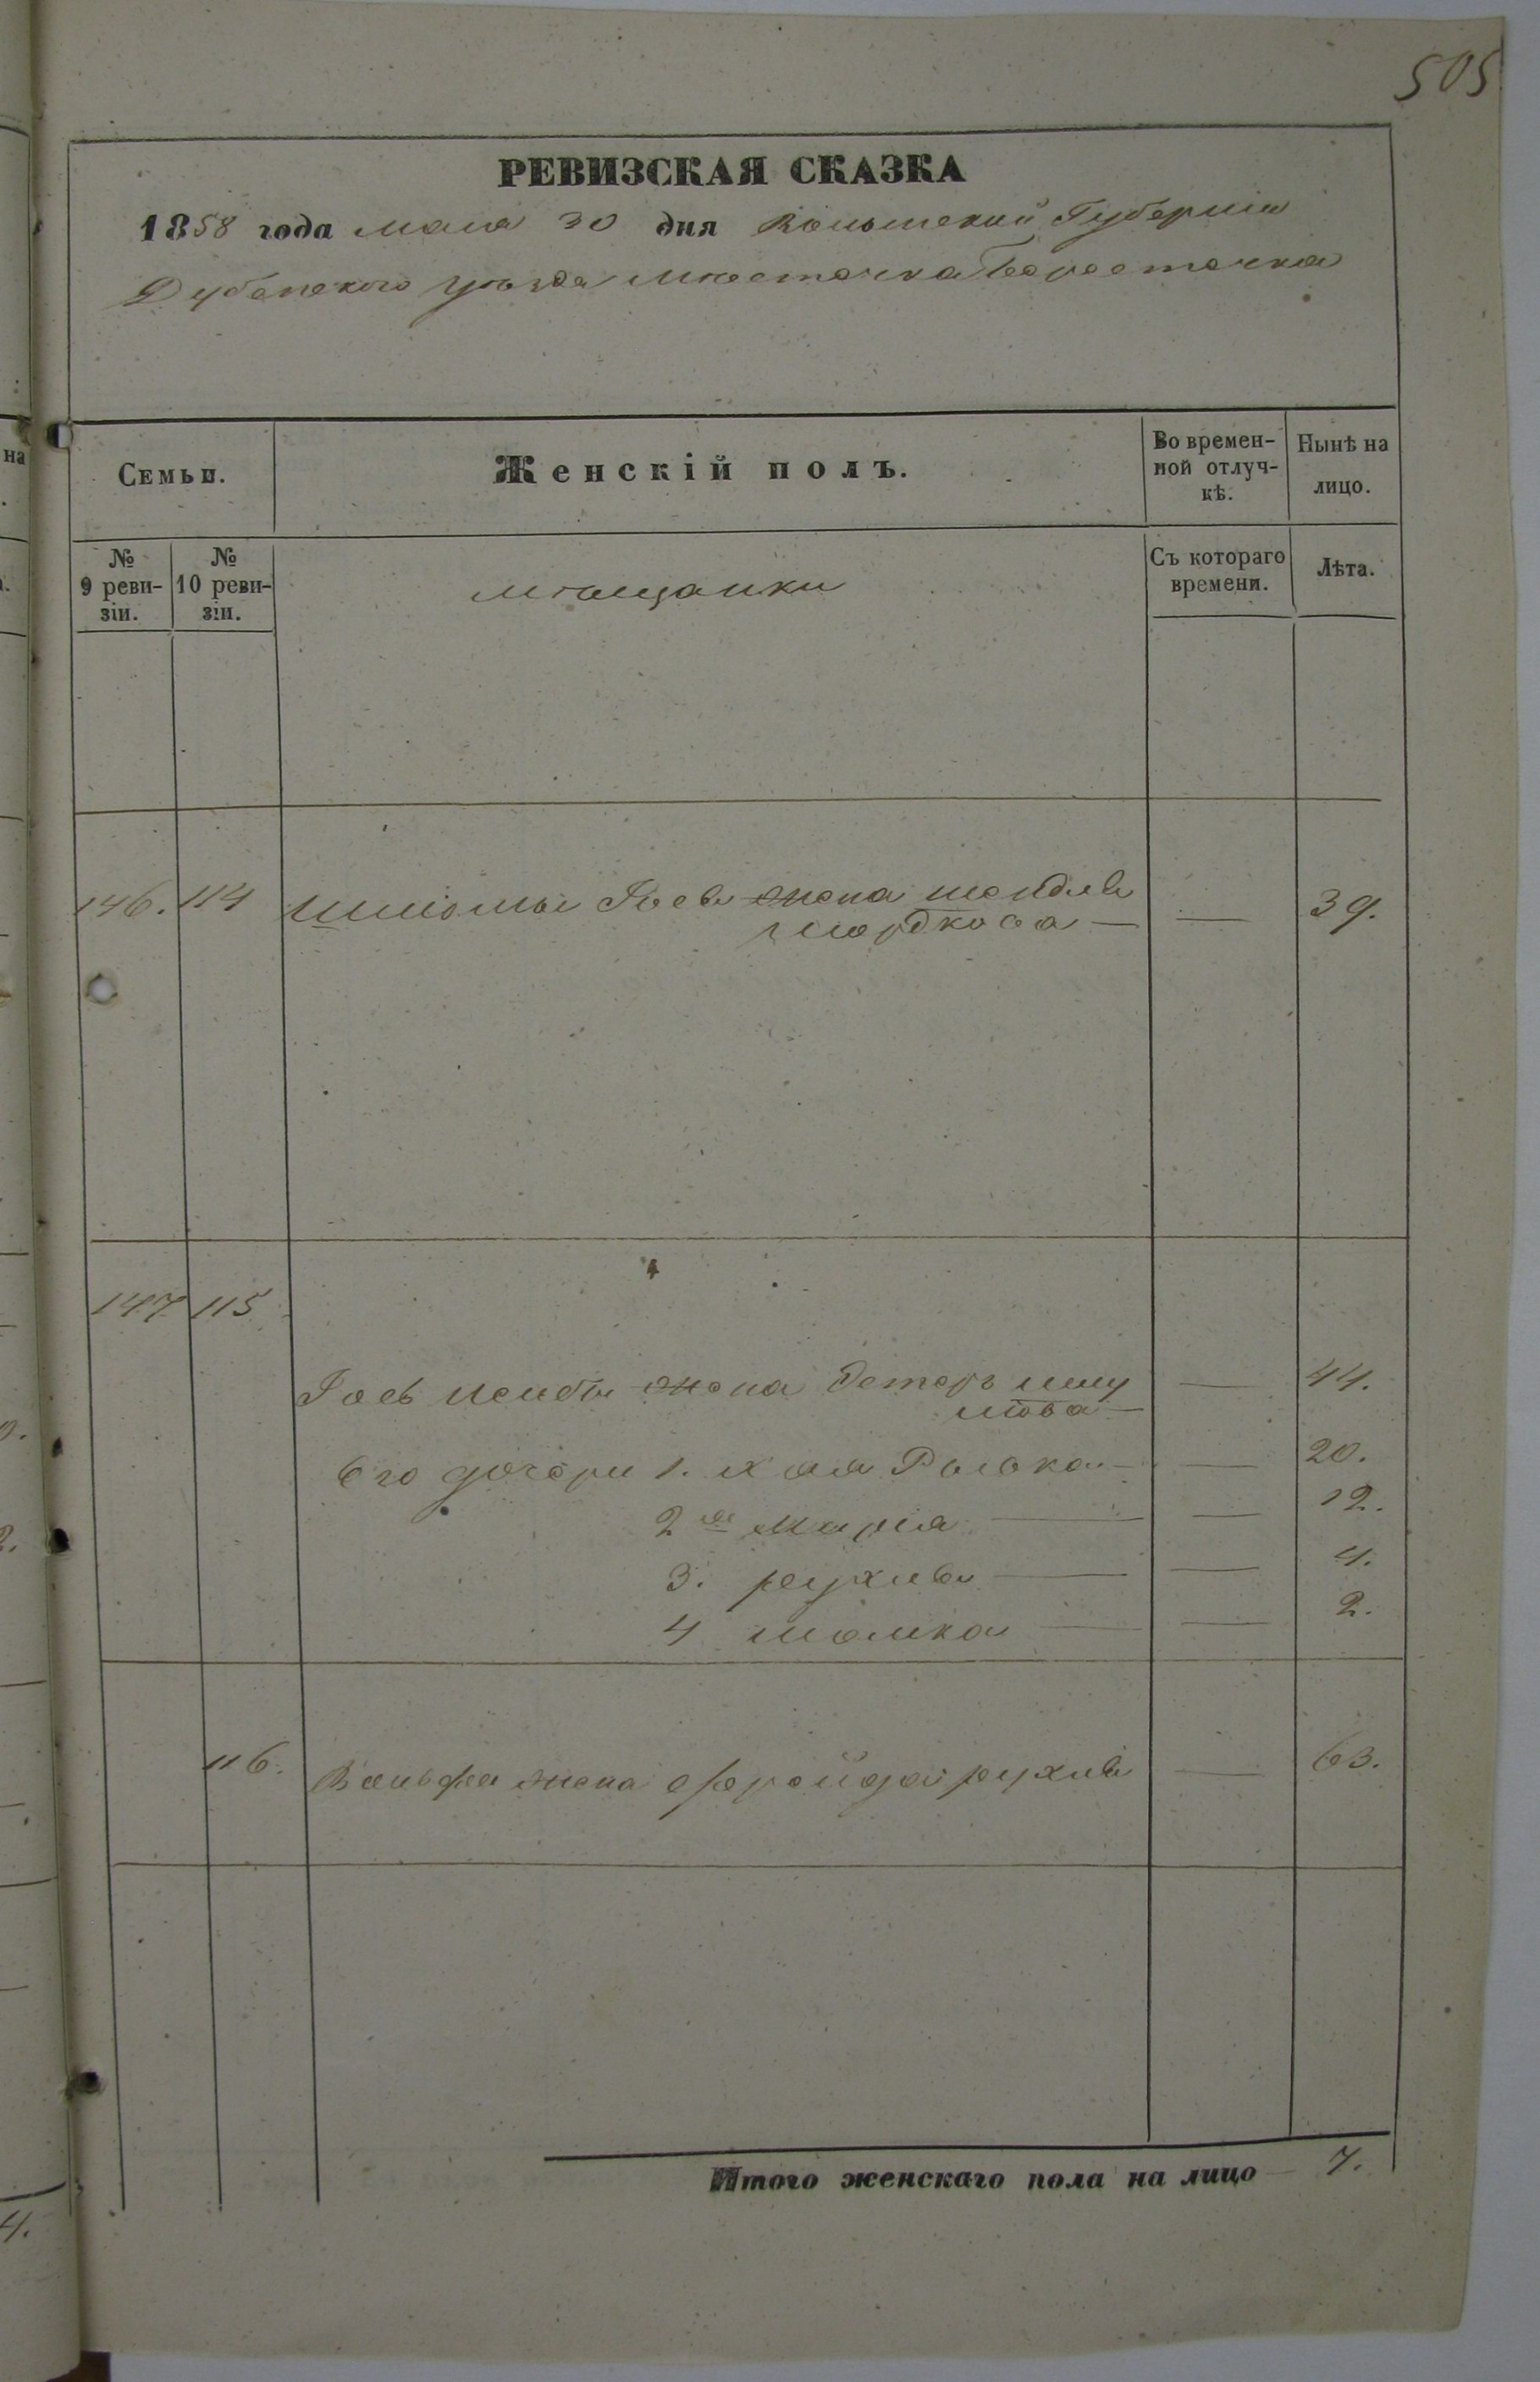 505
РЕВИЗСКАЯ СКАЗКА
1858 года мая 30 дня Волынской Губерніи
Дубенского уѣзда местечка Берестечка
Семьи.
Женскій полъ.
Во времен-
ной отлуч-
кѣ.
Нынѣ на
лицо.
№
9 реви-
зіи.
№
10 реви-
зіи.
мѣщанки
Съ котораго
времени.
Лѣта.
146. 114 Шліомы Іось жена шендля — 39.
мордкова —
147 115
Іось жена Эстеръ шлу — 44.
мова —
Его дочери 1. Хая Рывка — — 20.
2я Марія — — 12.
3. рухля — — 4.
4 малка — — 2.
116. Вольфа жена фрейда рухля — 63.
Итого женскаго пола на лицо — 7.
на
4.